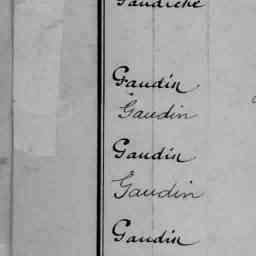 Gaudiche
Gaudin
Gaudin
Gaudin
Gaudin
Gaudin